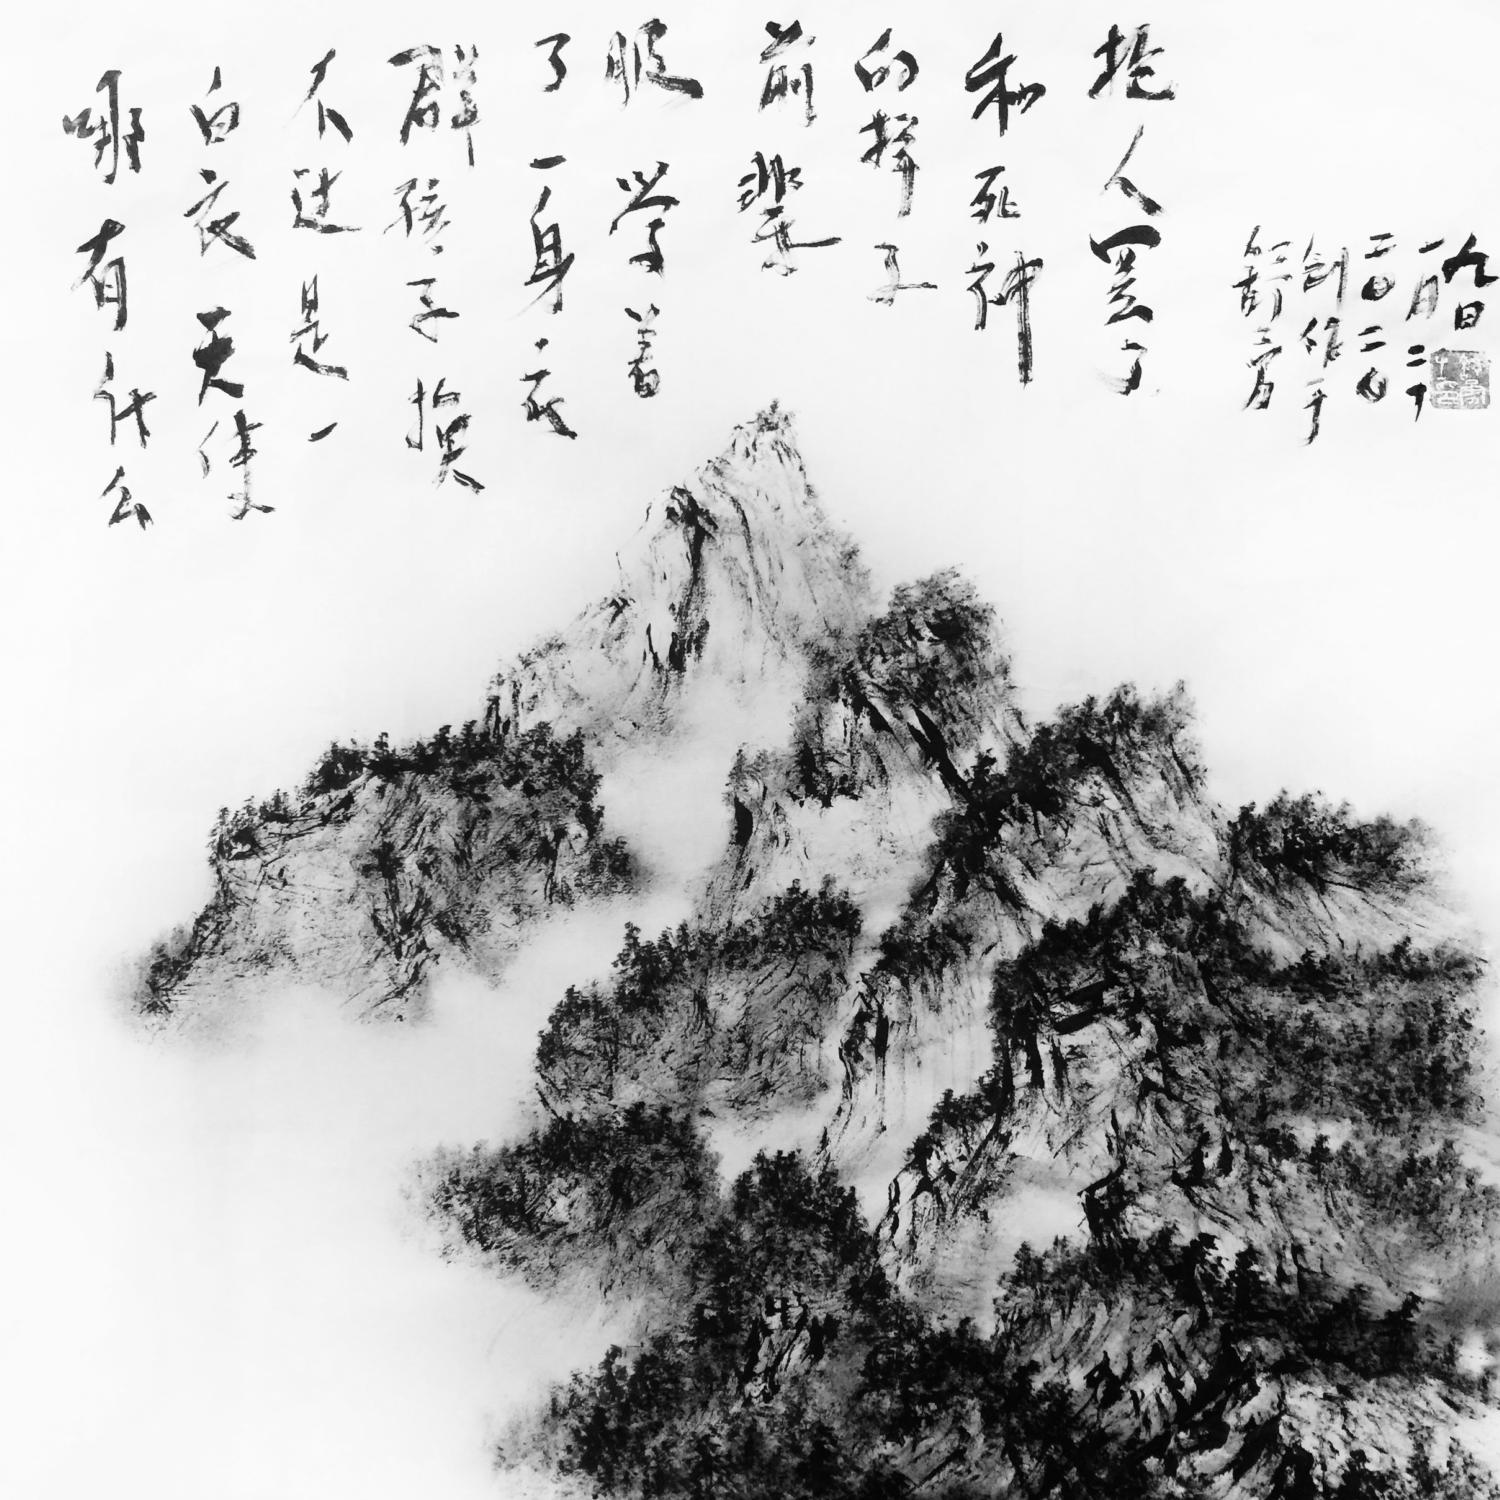 哪有什么
白衣天使
不过是一
群孩子换
了一身衣
服学着
前辈
的样子
和死神
抢人罢了
舒勇
创作于
二〇二〇
一月二十
九日